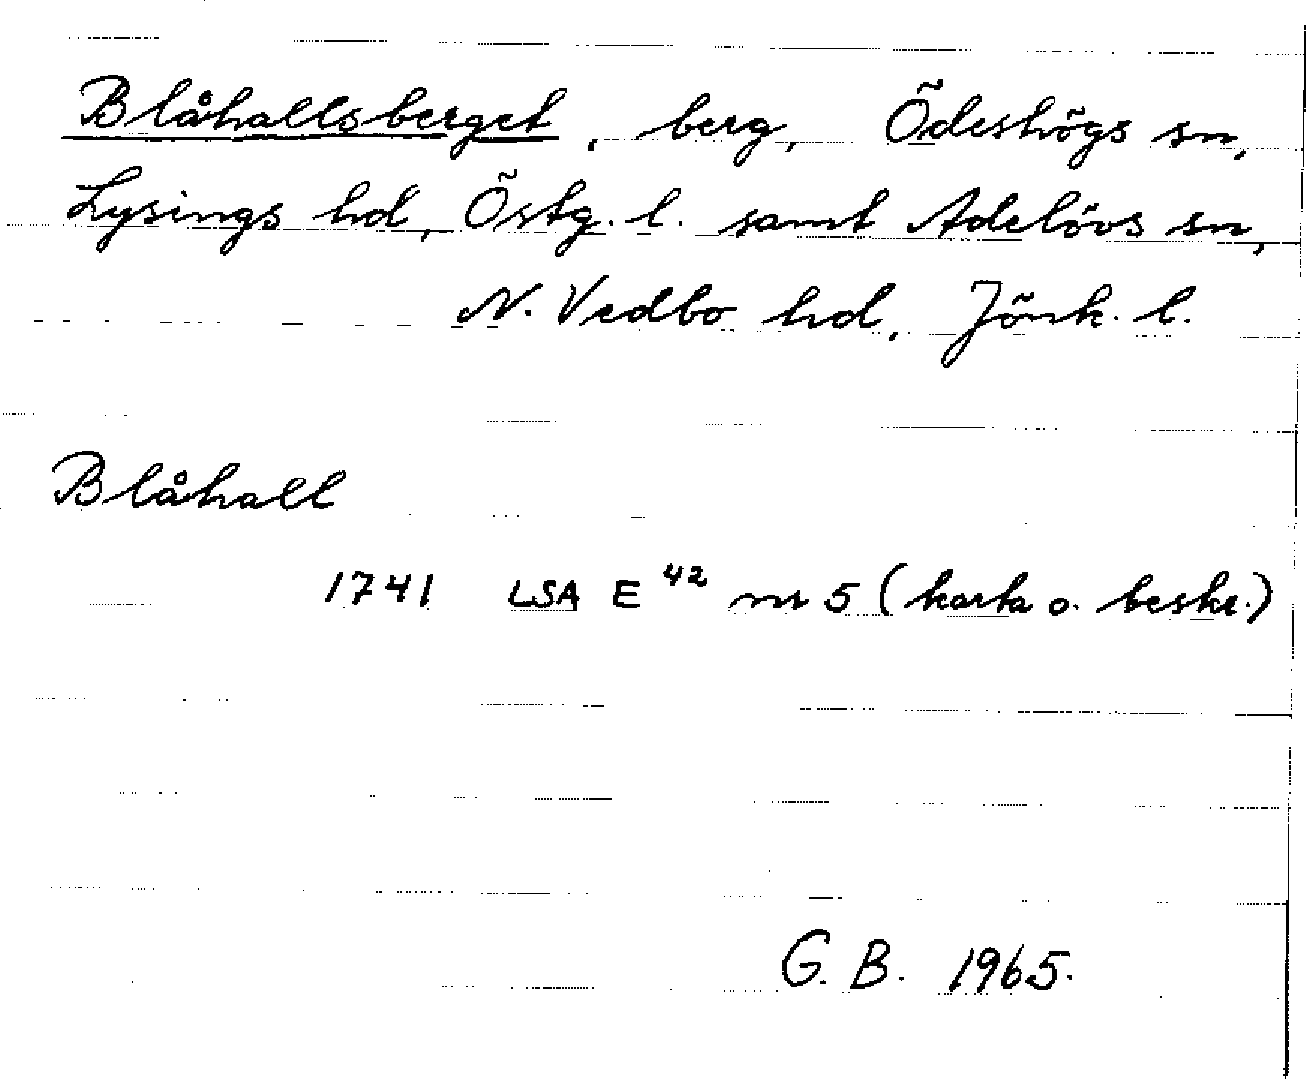 Blåhallsberget, berg, Ödeshögs sn,
Lysings hd, Östg. l. samt Adelövs sn,
N. Vedbo hd, Jönk. l.
Blåhall
1741 LSA E 42 nr 5 (karta o. beskr.)
G. B. 1965.